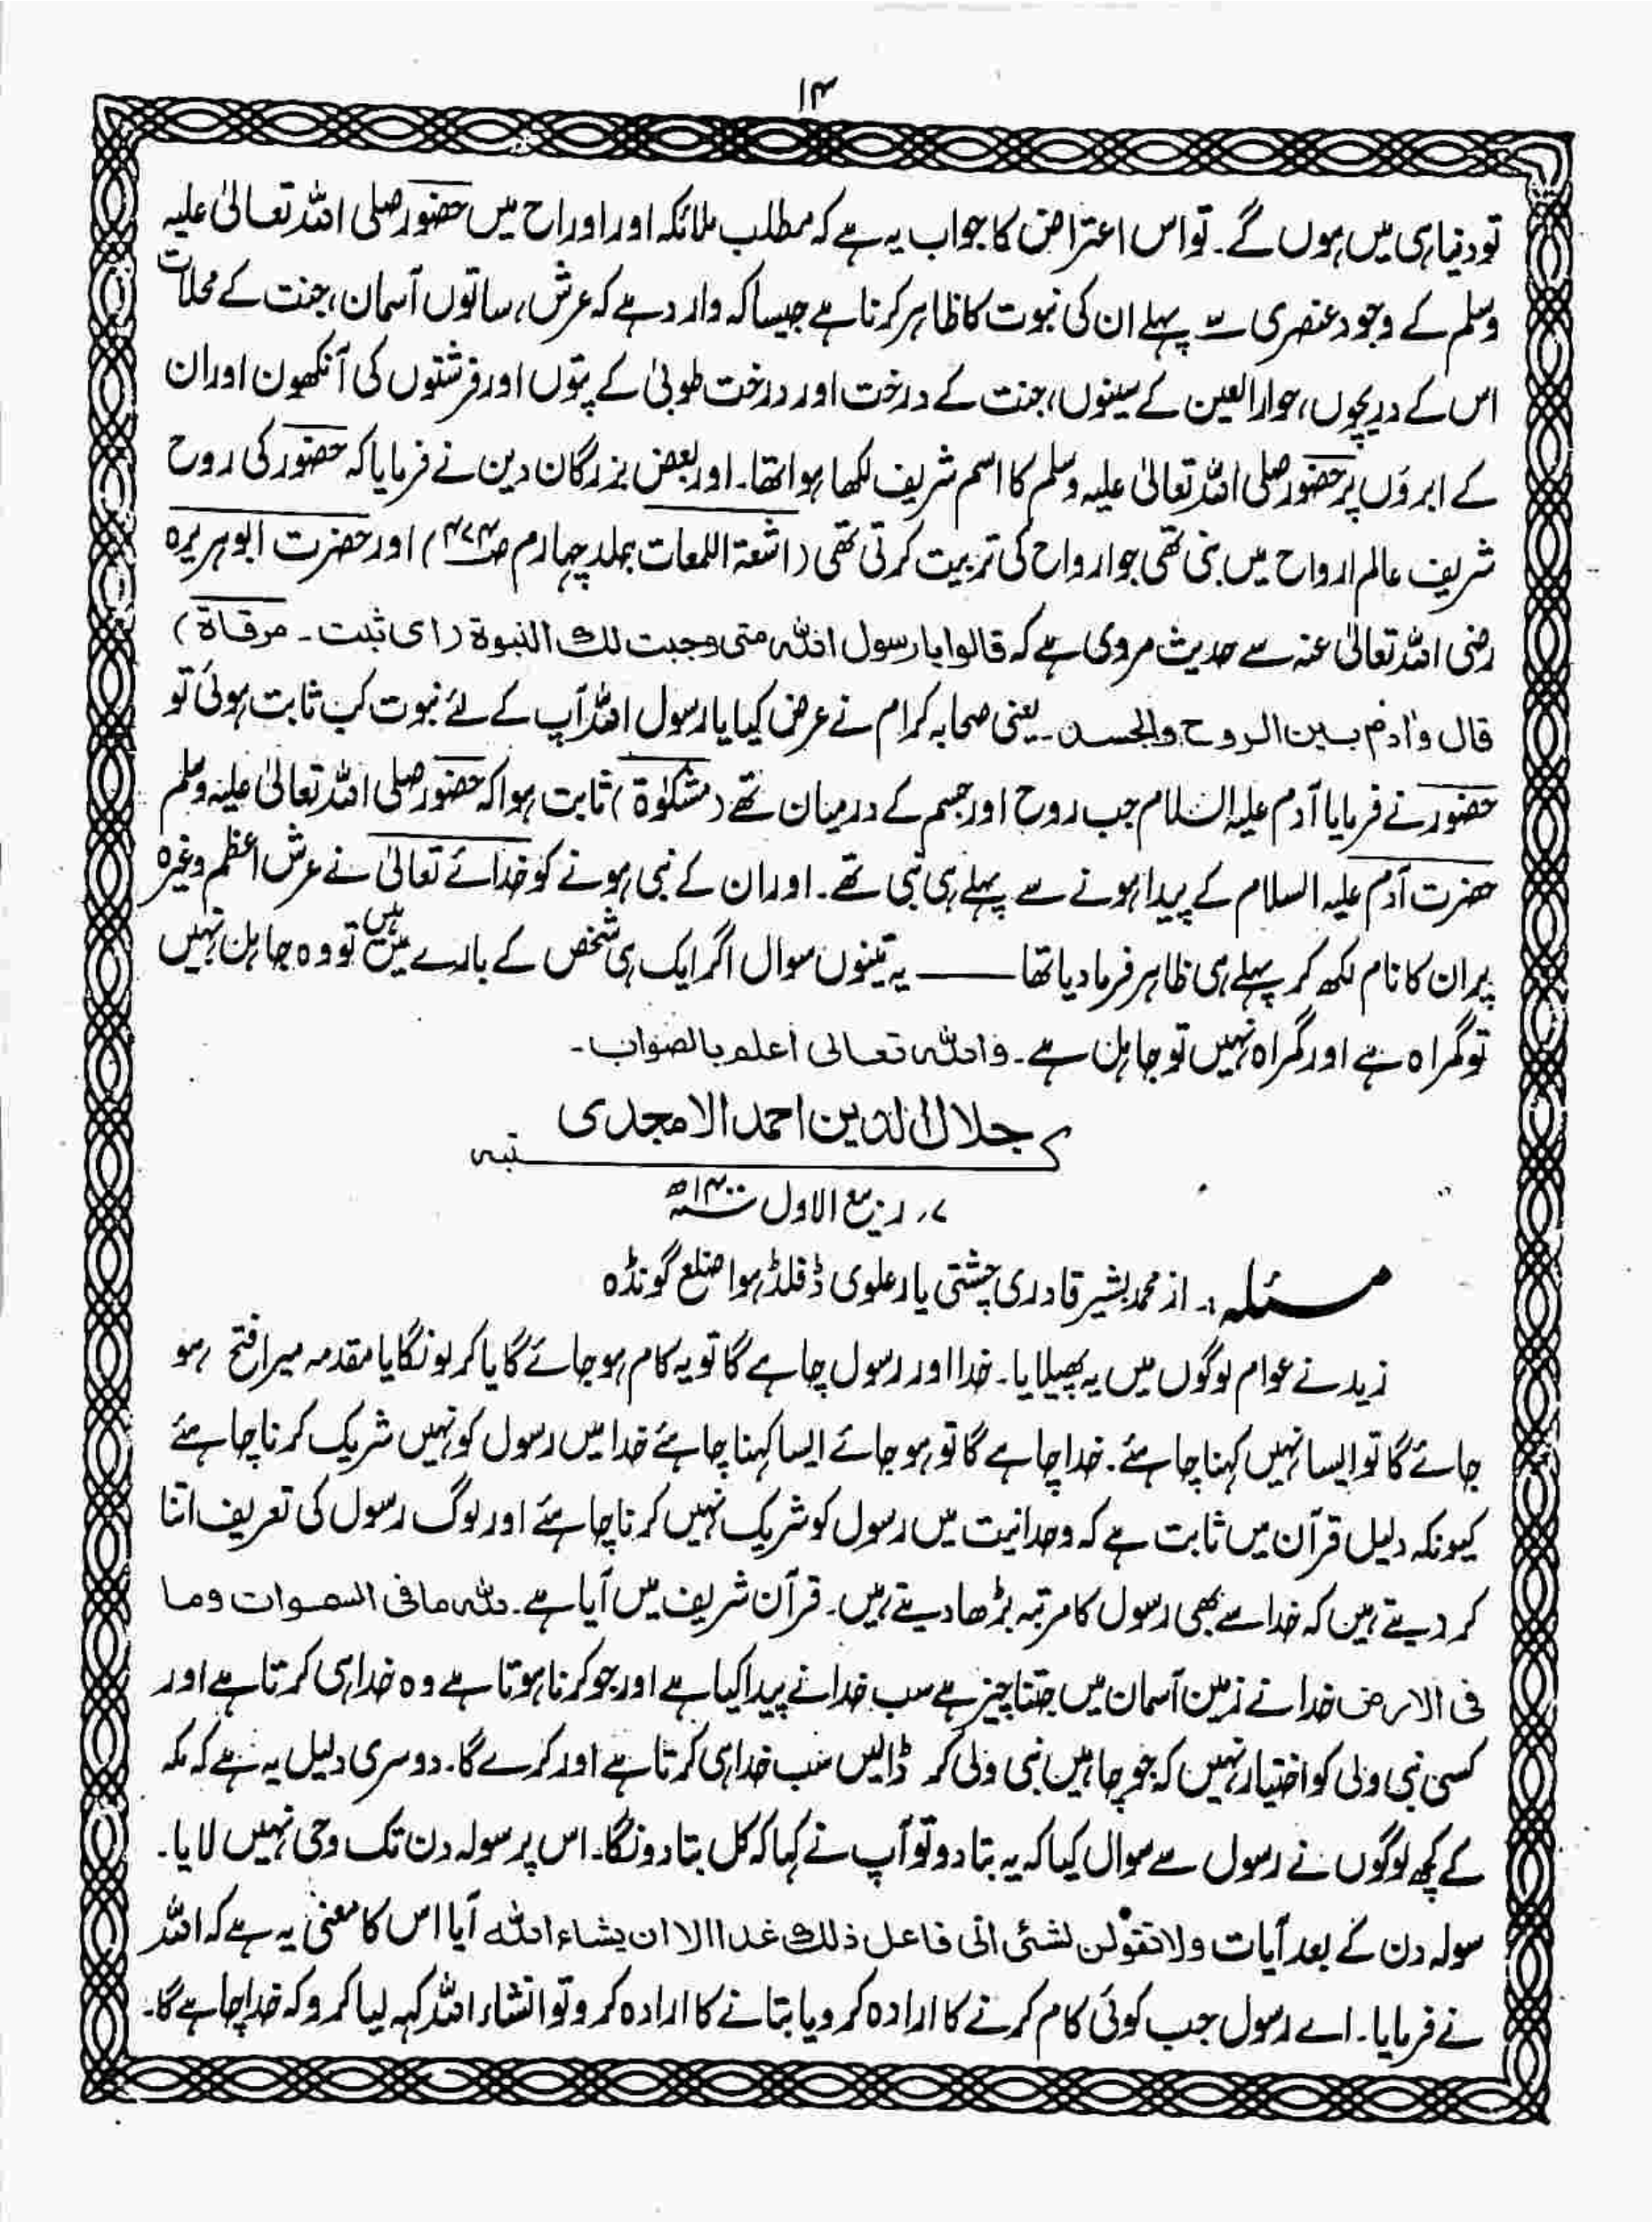 ۱۴
تو دنیا ہی میں ہوں گے۔ تو اس اعتراض کا جواب یہ ہے کہ مطلب ملائکہ اور اوراح میں حضور صلی اللہ تعالیٰ علیہ
وسلم کے وجود عنصری سے پہلے ان کی نبوت کا ظاہر کرنا ہے جیسا کہ وارد ہے کہ عرش، ساتوں آسمان، جنت کے محلات
اس کے دریچوں، حوار العین کے سینوں، جنت کے درخت اور درخت طوبیٰ کے پتوں اور فرشتوں کی آنکھون اور ان
کے ابروؤں پر حضور صلی اللہ تعالیٰ علیہ وسلم کا اسم شریف لکھا ہوا تھا۔ اور بعض بزرگان دین نے فرمایا کہ حضور کی روح
شریف عالم ارواح میں بنی تھی جو ارواح کی تربیت کرتی تھی (اشعۃ اللمعات جلد چہارم ص۴۷۴) اور حضرت ابوہریرہ
رضی اللہ تعالیٰ عنہ سے حدیث مروی ہے کہ قالوا یا رسول اللہ متی وجبت لك النبوة (ای ثبت۔ مرقاة)
قال وآدم بین الروح والجسد۔ یعنی صحابہ کرام نے عرض کیا یا رسول اللہ آپ کے لئے نبوت کب ثابت ہوئی تو
حضور نے فرمایا آدم علیہ السلام جب روح اور جسم کے درمیان تھے (مشکوٰۃ) ثابت ہوا کہ حضور صلی اللہ تعالیٰ علیہ وسلم
حضرت آدم علیہ السلام کے پیدا ہونے سے پہلے ہی نبی تھے۔ اور ان کے نبی ہونے کو خدائے تعالیٰ نے عرش اعظم وغیرہ
پر ان کا نام لکھ کر پہلے ہی ظاہر فرما دیا تھا —— یہ تینوں سوال اگر ایک ہی شخص کے بارے میں ہیں تو وہ جاہل نہیں
تو گمراہ ہے اور گمراہ نہیں تو جاہل ہے۔ واللہ تعالی اعلم بالصواب۔
کتبہ جلال الدین احمد الامجدی
۷؍ ربیع الاول ۱۴۰۰ھ
مسئلہ:۔ از محمد بشیر قادری چشتی یار علوی ڈفلڈہوا ضلع گونڈہ
زید نے عوام لوگوں میں یہ پھیلایا۔ خدا اور رسول چاہے گا تو یہ کام ہو جائے گا یا کر لونگا یا مقدمہ میرا فتح ہو
جائے گا تو ایسا نہیں کہنا چاہئے۔ خدا چاہے گا تو ہو جائے ایسا کہنا چاہئے خدا میں رسول کو نہیں شریک کرنا چاہئے
کیونکہ دلیل قرآن میں ثابت ہے کہ وحدانیت میں رسول کو شریک نہیں کرنا چاہئے اور لوگ رسول کی تعریف اتنا
کر دیتے ہیں کہ خدا سے بھی رسول کا مرتبہ بڑھا دیتے ہیں۔ قرآن شریف میں آیا ہے۔ للہ ما فی السموات وما
فی الارض خدا نے زمین آسمان میں جتنا چیز ہے سب خدا نے پیدا کیا ہے اور جو کرنا ہوتا ہے وہ خدا ہی کرتا ہے اور
کسی نبی ولی کو اختیار نہیں کہ جو چاہیں نبی ولی کر ڈالیں سب خدا ہی کرتا ہے اور کرے گا۔ دوسری دلیل یہ ہے کہ مکہ
کے کچھ لوگوں نے رسول سے سوال کیا کہ یہ بتا دو تو آپ نے کہا کہ کل بتا دونگا۔ اس پر سولہ دن تک وحی نہیں لایا۔
سولہ دن کے بعد آیات ولا تقولن لشئی انی فاعل ذلك غدا الا ان یشاء اللہ آیا اس کا معنی یہ ہے کہ اللہ
نے فرمایا۔ اے رسول جب کوئی کام کرنے کا ارادہ کرو یا بتانے کا ارادہ کرو تو انشاء اللہ کہہ لیا کرو کہ خدا چاہے گا۔